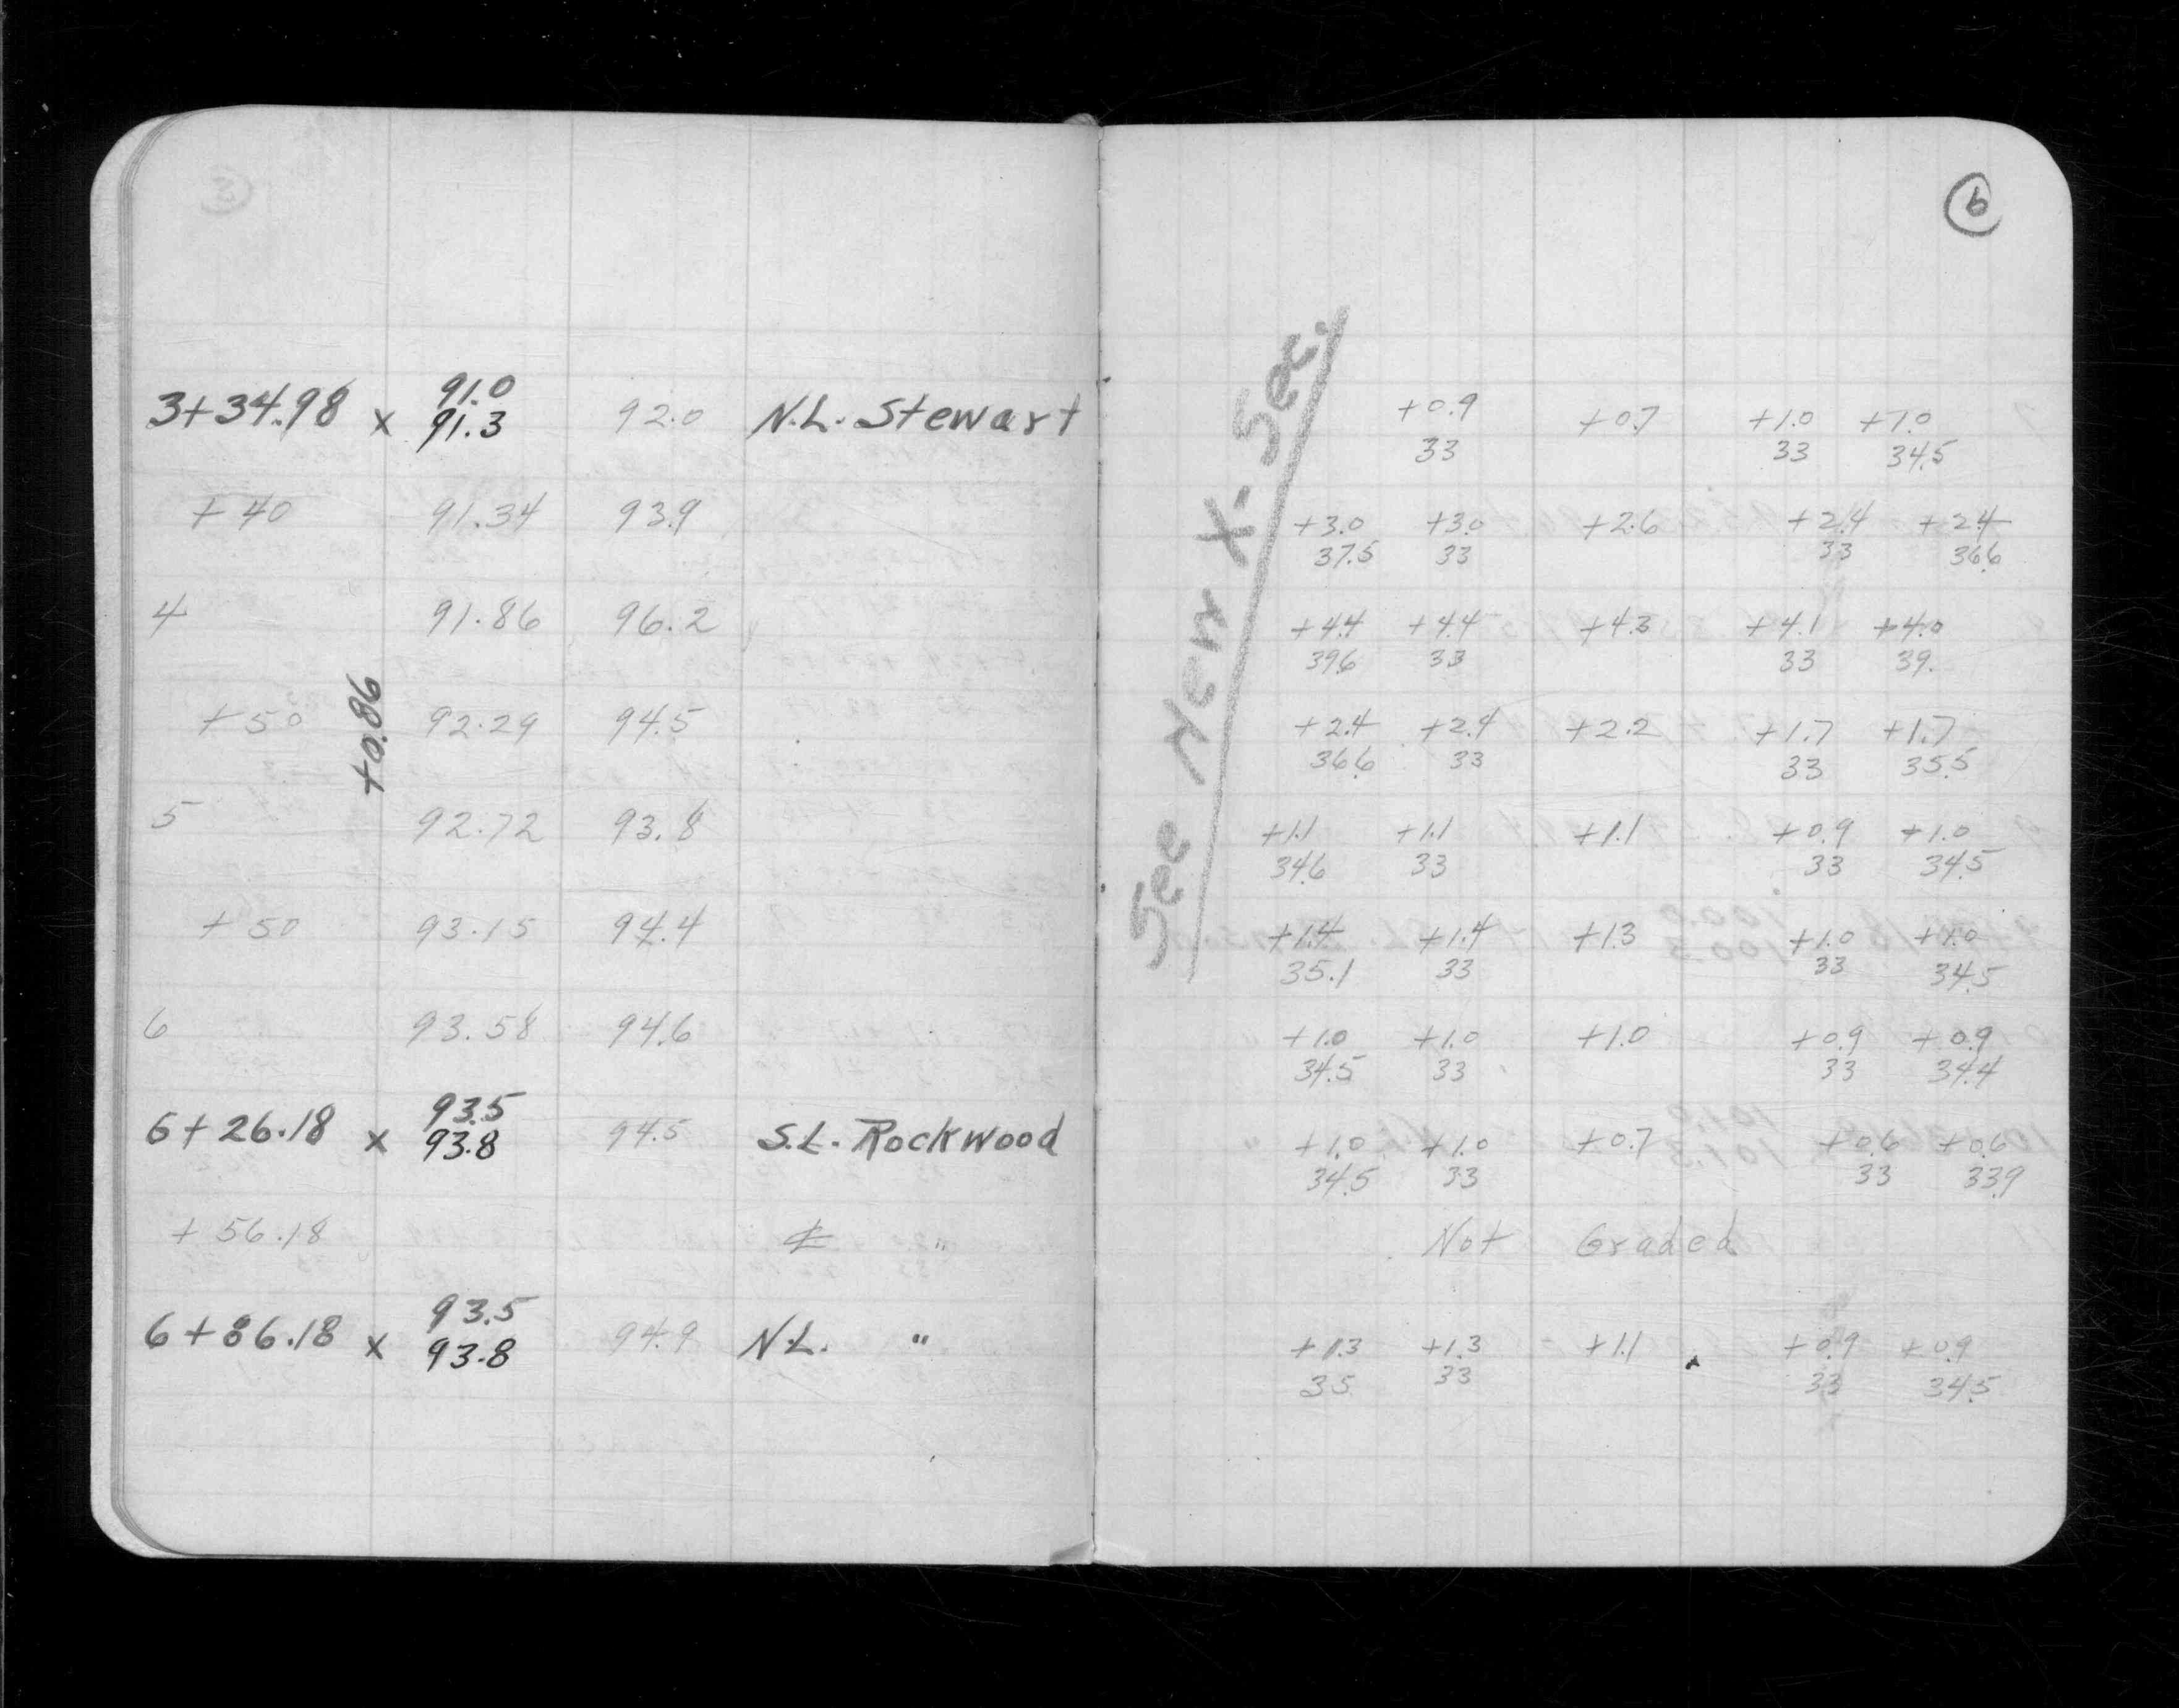 6
3+34.98 x 91.0 91.3 92.0 N.L. Stewart
+40 91.34 93.9
4 91.86 96.2
+50 92.29 94.5
+0.86
5 92.72 93.8
+50 93.15 94.4
6 93.58 94.6
6+26.18 x 93.5 93.8 94.5 S.L. Rockwood
+56.18 ₵ "
6+86.18 x 93.5 93.8 94.9 N.L. "
See New X-Sec.
+0.9 +0.7 +1.0 +1.0
33 33 34.5
+3.0 +3.0 +2.6 +2.4 +2.4
37.5 33 33 36.6
+4.4 +4.4 +4.3 +4.1 +4.0
39.6 33 33 39.
+2.4 +2.4 +2.2 +1.7 +1.7
36.6 33 33 35.5
+1.1 +1.1 +1.1 +0.9 +1.0
34.6 33 33 34.5
+1.4 +1.4 +1.3 +1.0 +1.0
35.1 33 33 34.5
+1.0 +1.0 +1.0 +0.9 +0.9
34.5 33 33 34.4
+1.0 +1.0 +0.7 +0.6 +0.6
34.5 33 33 33.9
Not Graded
+1.3 +1.3 +1.1 +0.9 +0.9
35 33 33 34.5